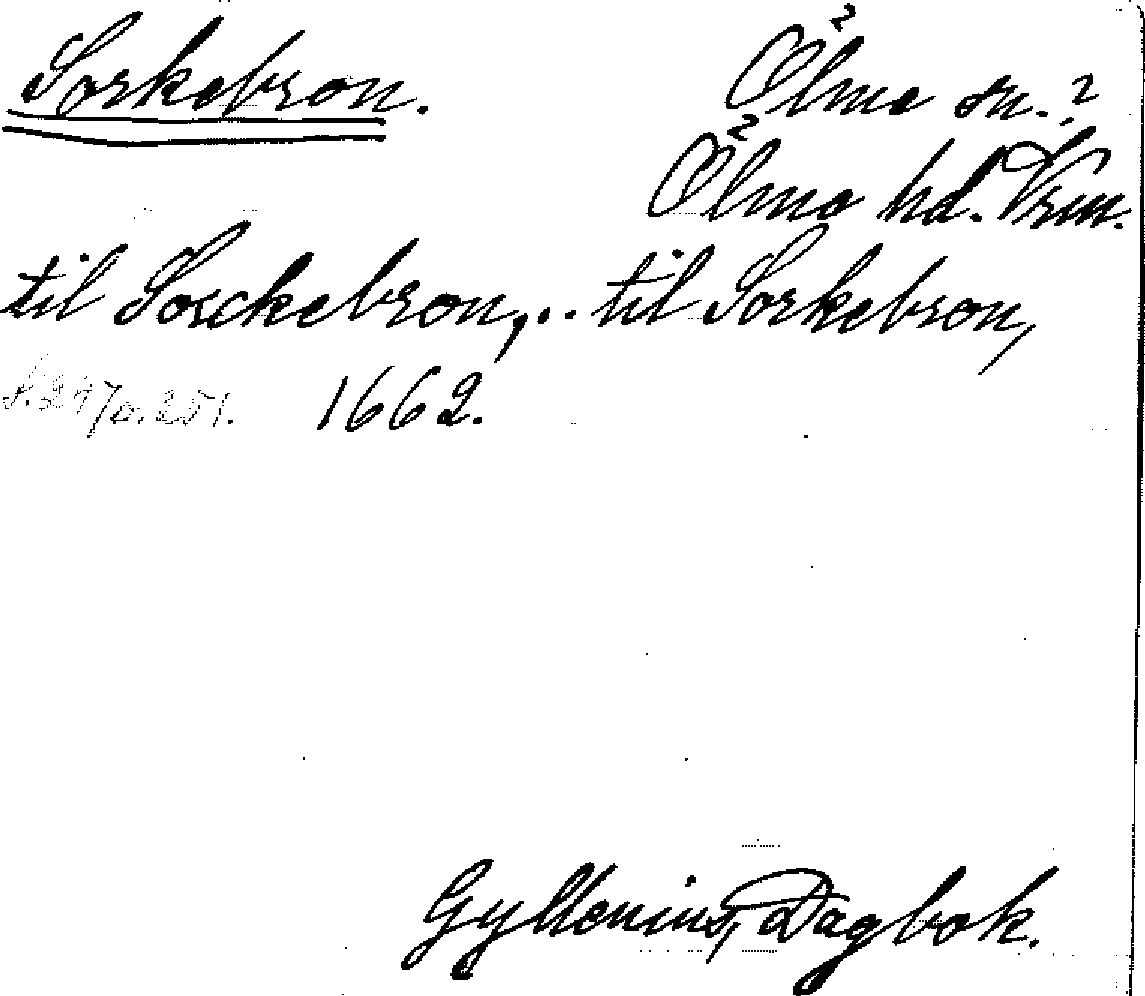 Sorkebron. Ölme sn.?
Ölme hd. Vrm.
til Sorckebron,.. til Sorkebron,
1662.
Gyllenius, Dagbok.